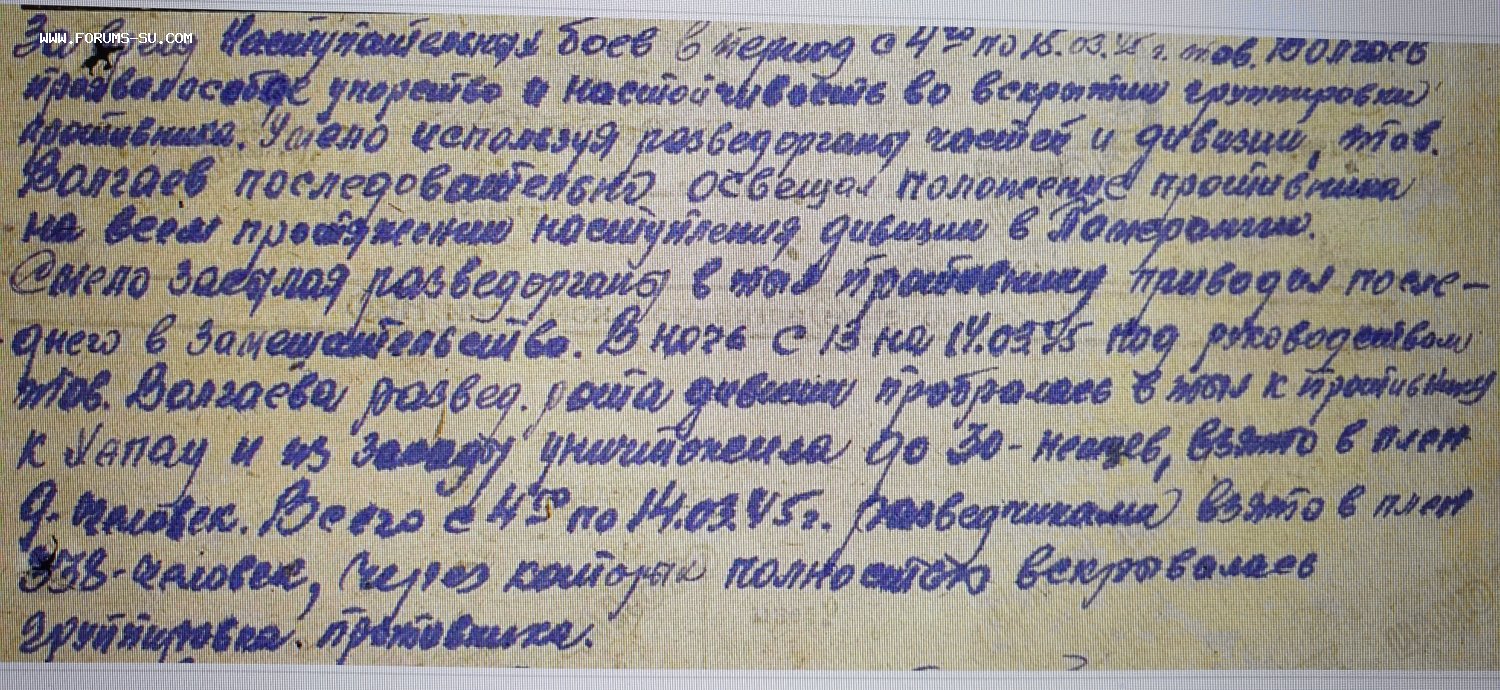 WWW.FORUMS-SU.COM
За период наступательных боев в период с 4го по 15.03.45 г. тов. Волгаев
проявлял особое упорство и настойчивость во вскрытии группировки
противника. Умело используя разведорганы частей и дивизии, тов.
Волгаев последовательно освещал положение противника
на всем протяжении наступления дивизии в Померании.
Смело засылая разведорганы в тыл противнику приводил после-
днего в замешательство. В ночь с 13 на 14.03.45 под руководством
тов. Волгаева развед. рота дивизии пробралась в тыл к противнику
к и из засады уничтожила до 30-немцев, взято в плен
9-человек. Всего с 4го по 14.03.45 г. разведчиками взято в плен
338-человек, через которых полностью вскрывалась
группировка противника.